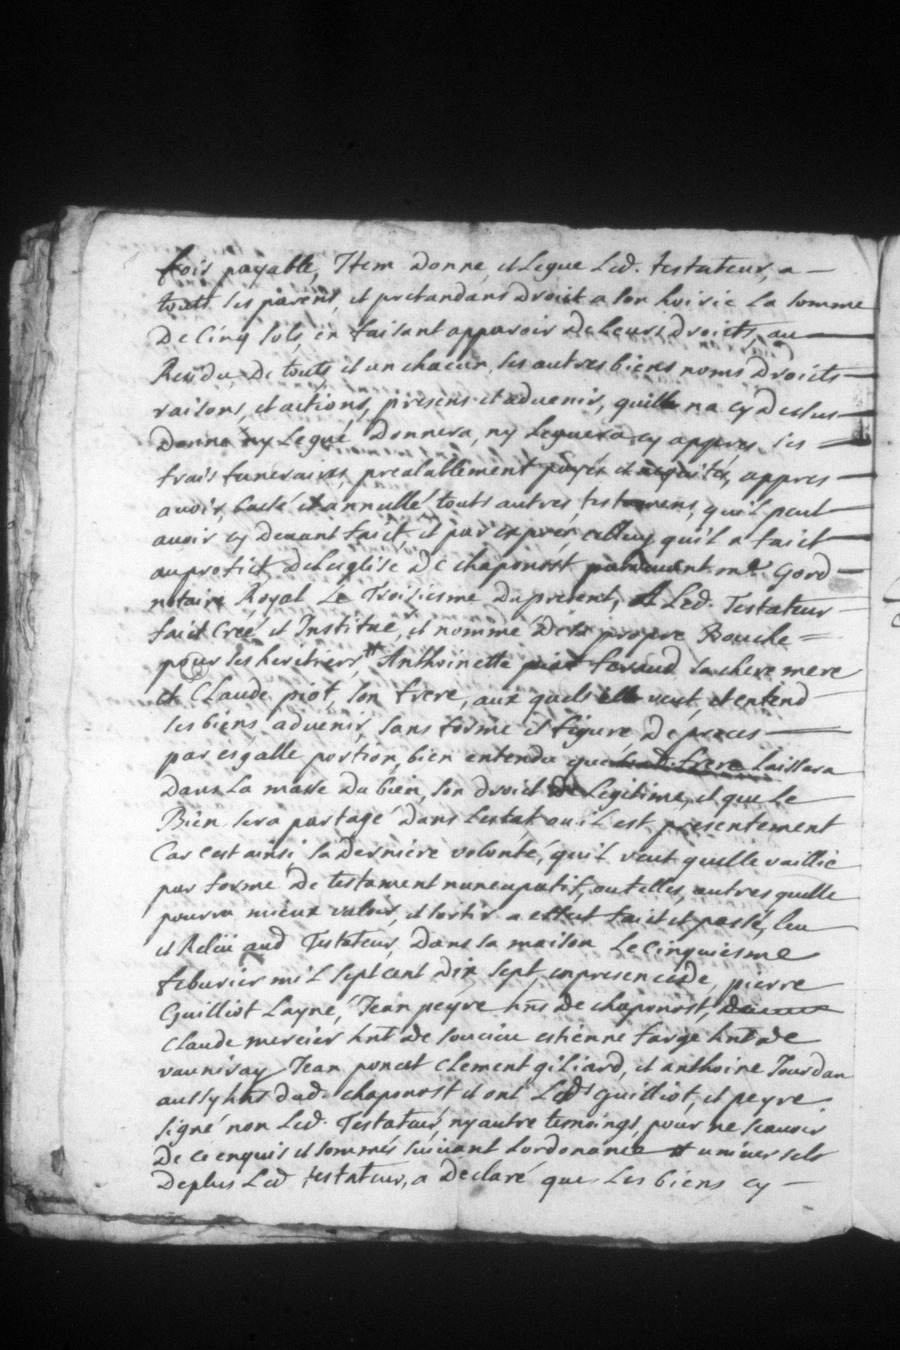 fois payable, Item donne, et Legue Led. testateur, a
touts ses parens, et pretandans droit a son hoirie La somme
De Cinq sols, en faisant apparoir De Leurs droicts, au
Residu De touts et un chacun ses autres biens noms Droicts
raisons, et actions, presens et advenir, quille na cy Dessus
Donné ny Legué Donnera, ny Leguera cy appres, ses
frais funeraires, prealablement payés et acquités, appres
avoir, cassé et annullé touts autres testamens, qu'il peut
avoir cy devant faict, et par exprés celluy qu'il a faict
au profict de Leglise De chaponost me. Gord
notaire Royal Le Troisiesme du present, Led. Testateur
faict Creé et Institué, et nommé De sa propre Bouche
pour ses heritiers # Anthoinette feraud sa chere mere
et Claude piot, son frere, aux quels veut, et entend
ses biens advenir, sans forme et figure De proces
par esgalle portion, bien entendu que led. frere Laissera
Dans La masse du bien, son droict De Legitime, et que Le
Bien sera partagé dans Lestat ou il est presentement
Car cest ainsi sa derniere volonté, qu'il veut quelle vaillie
par forme De testament nuncupatif, ou telles, autres quelle
pourra mieux valoir, et sortir a effect faict et passé, Leu
et Releu aud Testateur, Dans sa maison Le Cinquiesme
febvrier mil sept cent Dix sept, en presence de, pierre
Guilliot Layné, Jean peyre hns De chaponost,
Claude mercier hnt de soucieu estienne farge hnt de
vauniray Jean poncet Clement giliard, et anthoine Jourdan
aussy hns dud. chaponost et ont Leds Guilliot, et peyre
signé non Led. Testateur, ny autre temoings, pour ne scavoir
De ce enquis et sommés suivant Lordonance # universels
Deplus Led testateur, a Declaré que Les biens cy